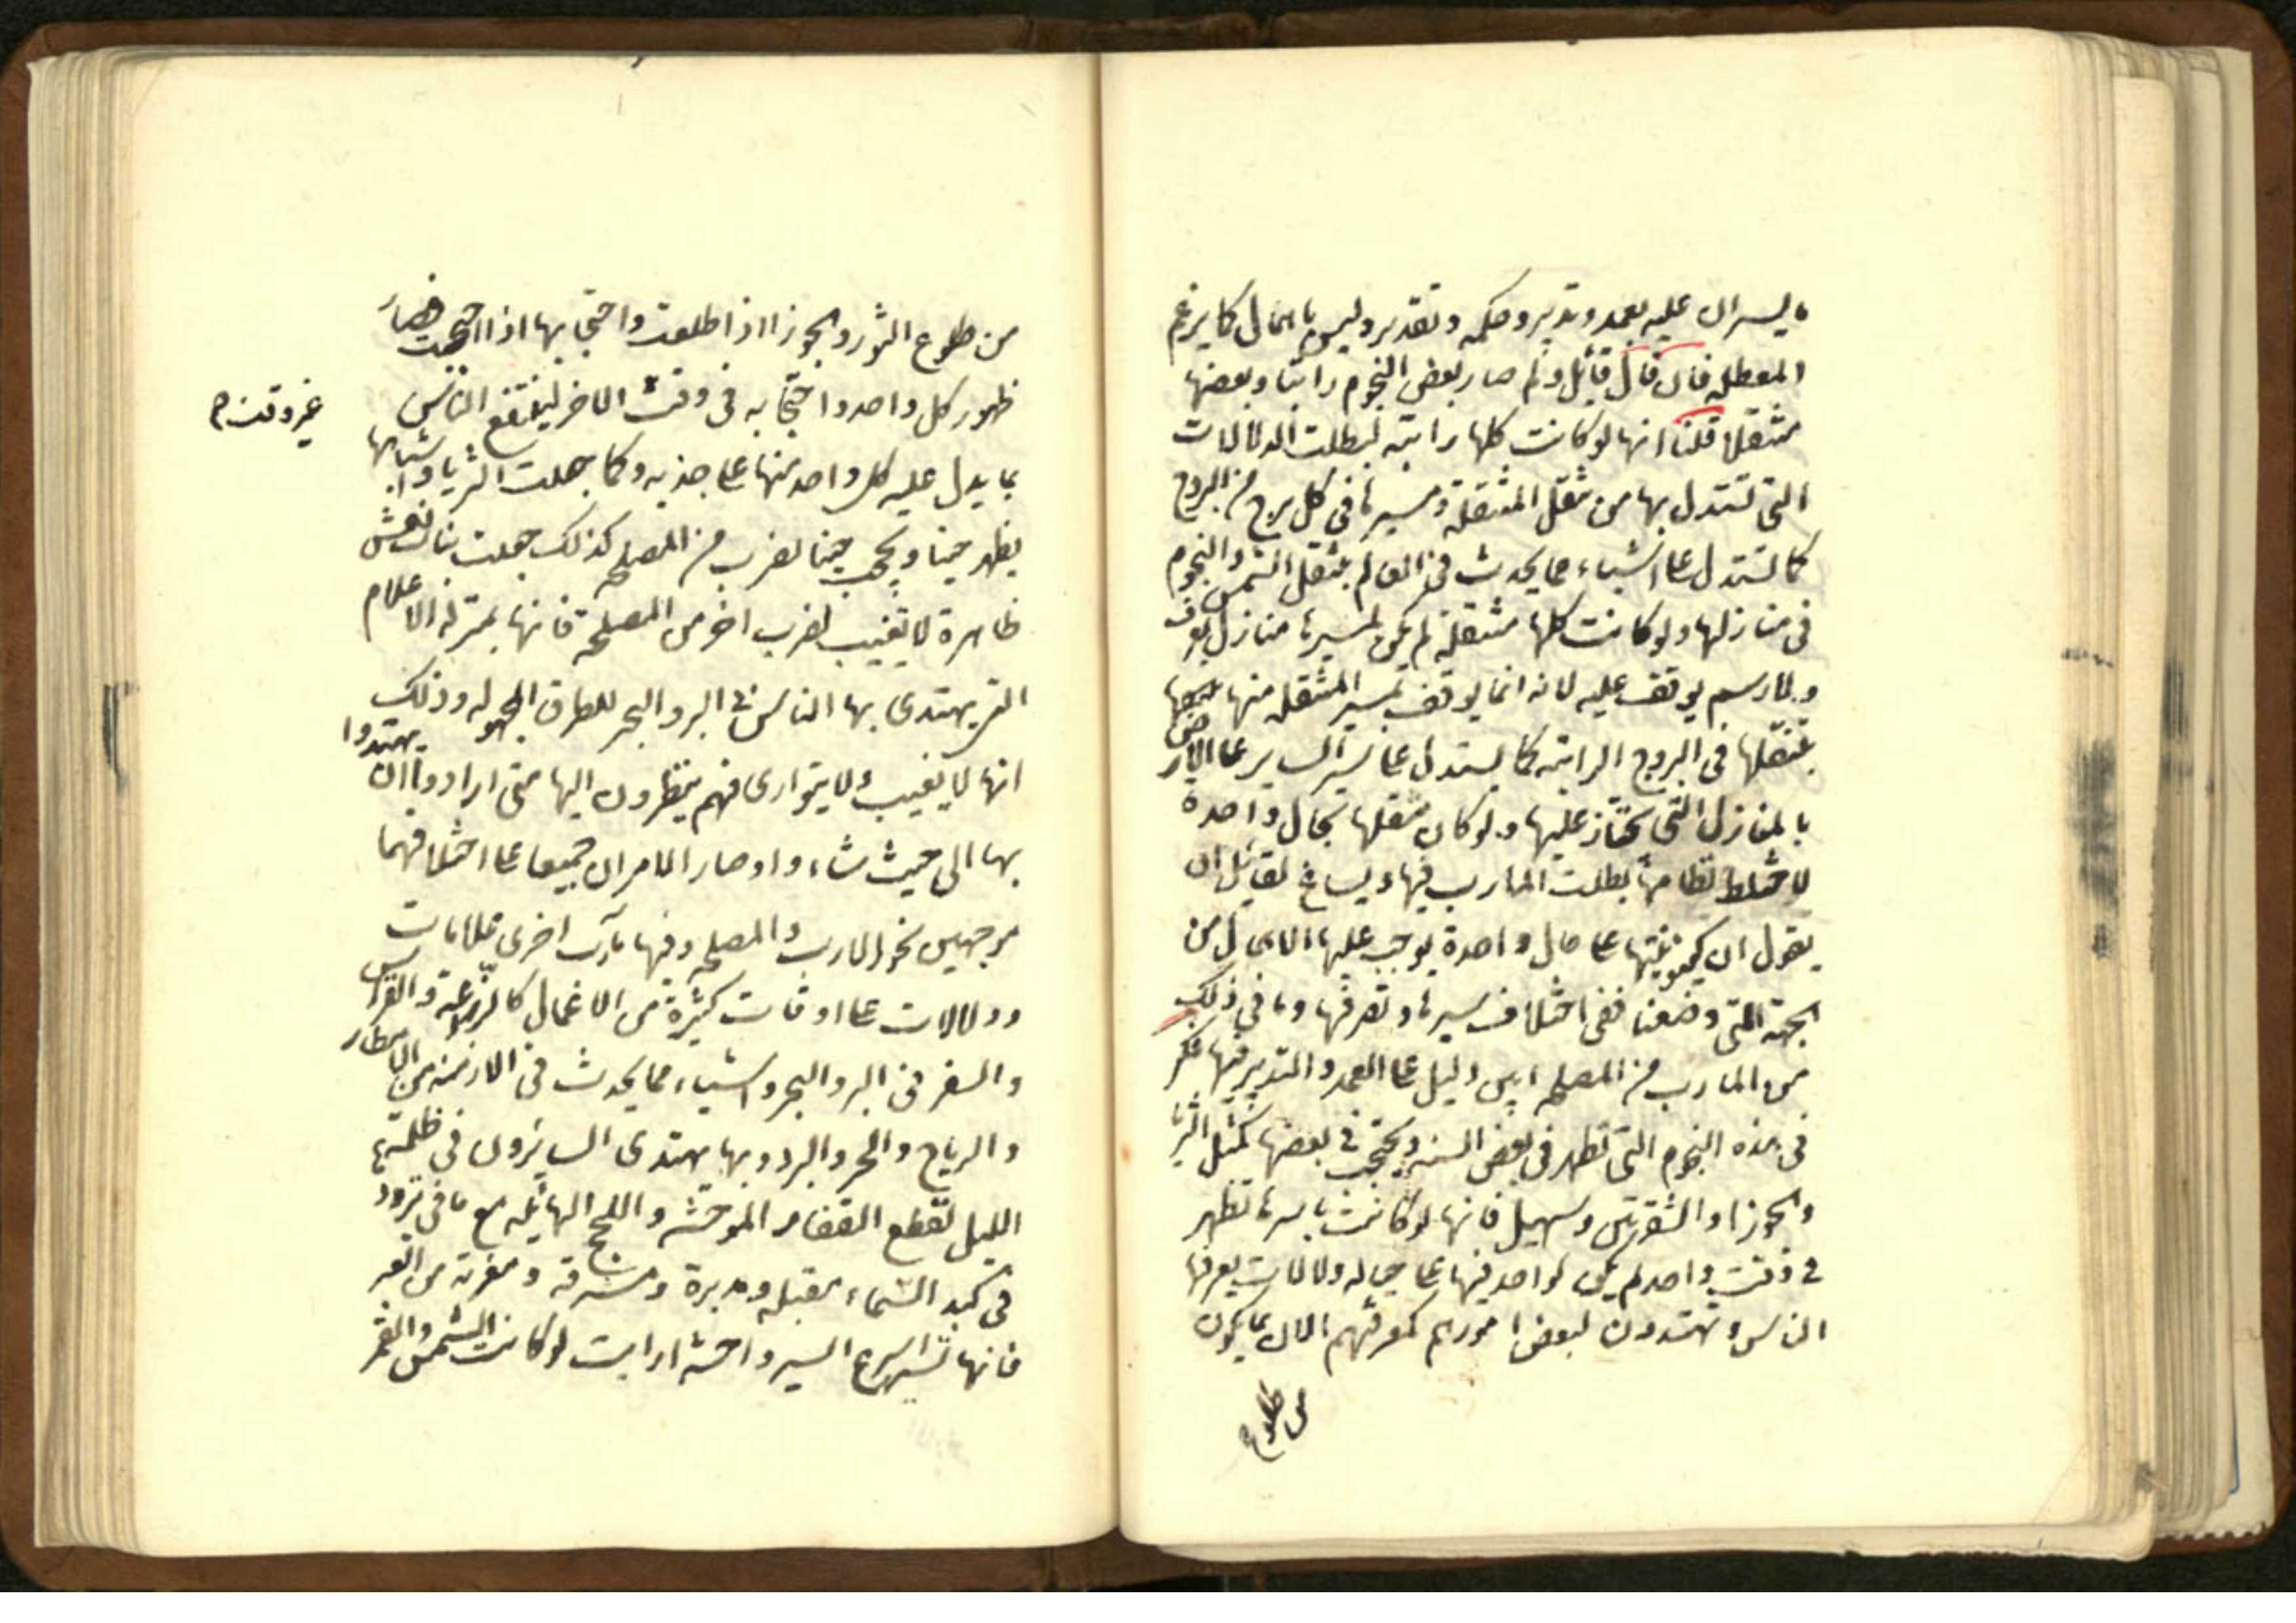 ما يسيران عليه بعمد وتدبير وحكمه وتقدير وليس باهمال كما يزعم
المعطله فان قال قائل ولم صار بعض النجوم راتبا وبعضها
متنقلا قلنا انها لو كانت كلها راتبه لبطلت الدلالات
التى تستدل بها من تنقل المتنقلة ومسيرها فى كل برج من البروج
كما تستدل على اشياء مما يحدث فى العالم بتنقل الشمس والنجوم
فى منازلها ولو كانت كلها متنقلة لم يكن لمسيرها منازل تعرف
ولا رسم يوقف عليه لانه انما يوقف بمسير المتنقله منها
بتنقلها فى البروج الراتبه كما يستدل على سير الساير على الارض
بالمنازل التى يجتاز عليها ولو كان تنقلها بحال واحدة
لاختلط نظامها بطلت المارب فيها ويساغ لقائل ان
يقول ان كينونيتها على حال واحدة يوجب عليها الاهمال من
الجهة التى وصفنا ففى اختلاف سيرها وتصرفها وما فى ذلك
من المارب من المصلحه ابين دليل على العمد والتدبير فيها فكر
فى هذه النجوم التى تظهر فى بعض السنه ويحتجب فى بعضها كمثل الثريا
والجوزا والشعريين وسهيل فانها لو كانت باسرها تظهر
فى وقت واحد لم يكن لواحد فيها على حياله دلالات يعرفها
الناس ويهتدون لبعض امورهم كمعرفتهم الان بما يكون
من طلوع
من طلوع الثور والجوزا اذا طلعت واحتجابها اذا احتجبت فصار
ظهور كل واحد واحتجابه فى وقت الاخر لينتفع الناس
غير وقت م
بما يدل عليه كل واحد منها على حدته وكما جعلت الثريا واشباهها
يظهر حينا ويحجب حينا لضرب من المصلحه كذلك جعلت بنات نعش
ظاهرة لا تغيب لضرب اخر من المصلحة فانها بمنزلة الاعلام
التى يهتدى بها الناس فى البر والبحر للطرق المجهوله وذلك
انها لا يغيب ولا يتوارى فهم ينظرون اليها متى ارادوا ان يهتدوا
بها الى حيث شاءوا وصار الامران جميعا على اختلافهما
موجهين نحو المارب والمصلحه وفيها مآرب اخرى علامات
ودلالات على اوقات كثيرة من الاعمال كالزراعة والغراس
والسفر فى البر والبحر واشياء مما يحدث فى الازمنه من الامطار
والرياح والحر والبرد وبها يهتدى السايرون فى ظلمة
الليل لقطع القفار الموحشه واللجج الهائله مع ما فى ترددها
فى كبد السماء مقبله ومدبرة ومشرقه ومغربه من العبر
فانها تسير اسرع السير واحثه ارايت لو كانت الشمس والقمر